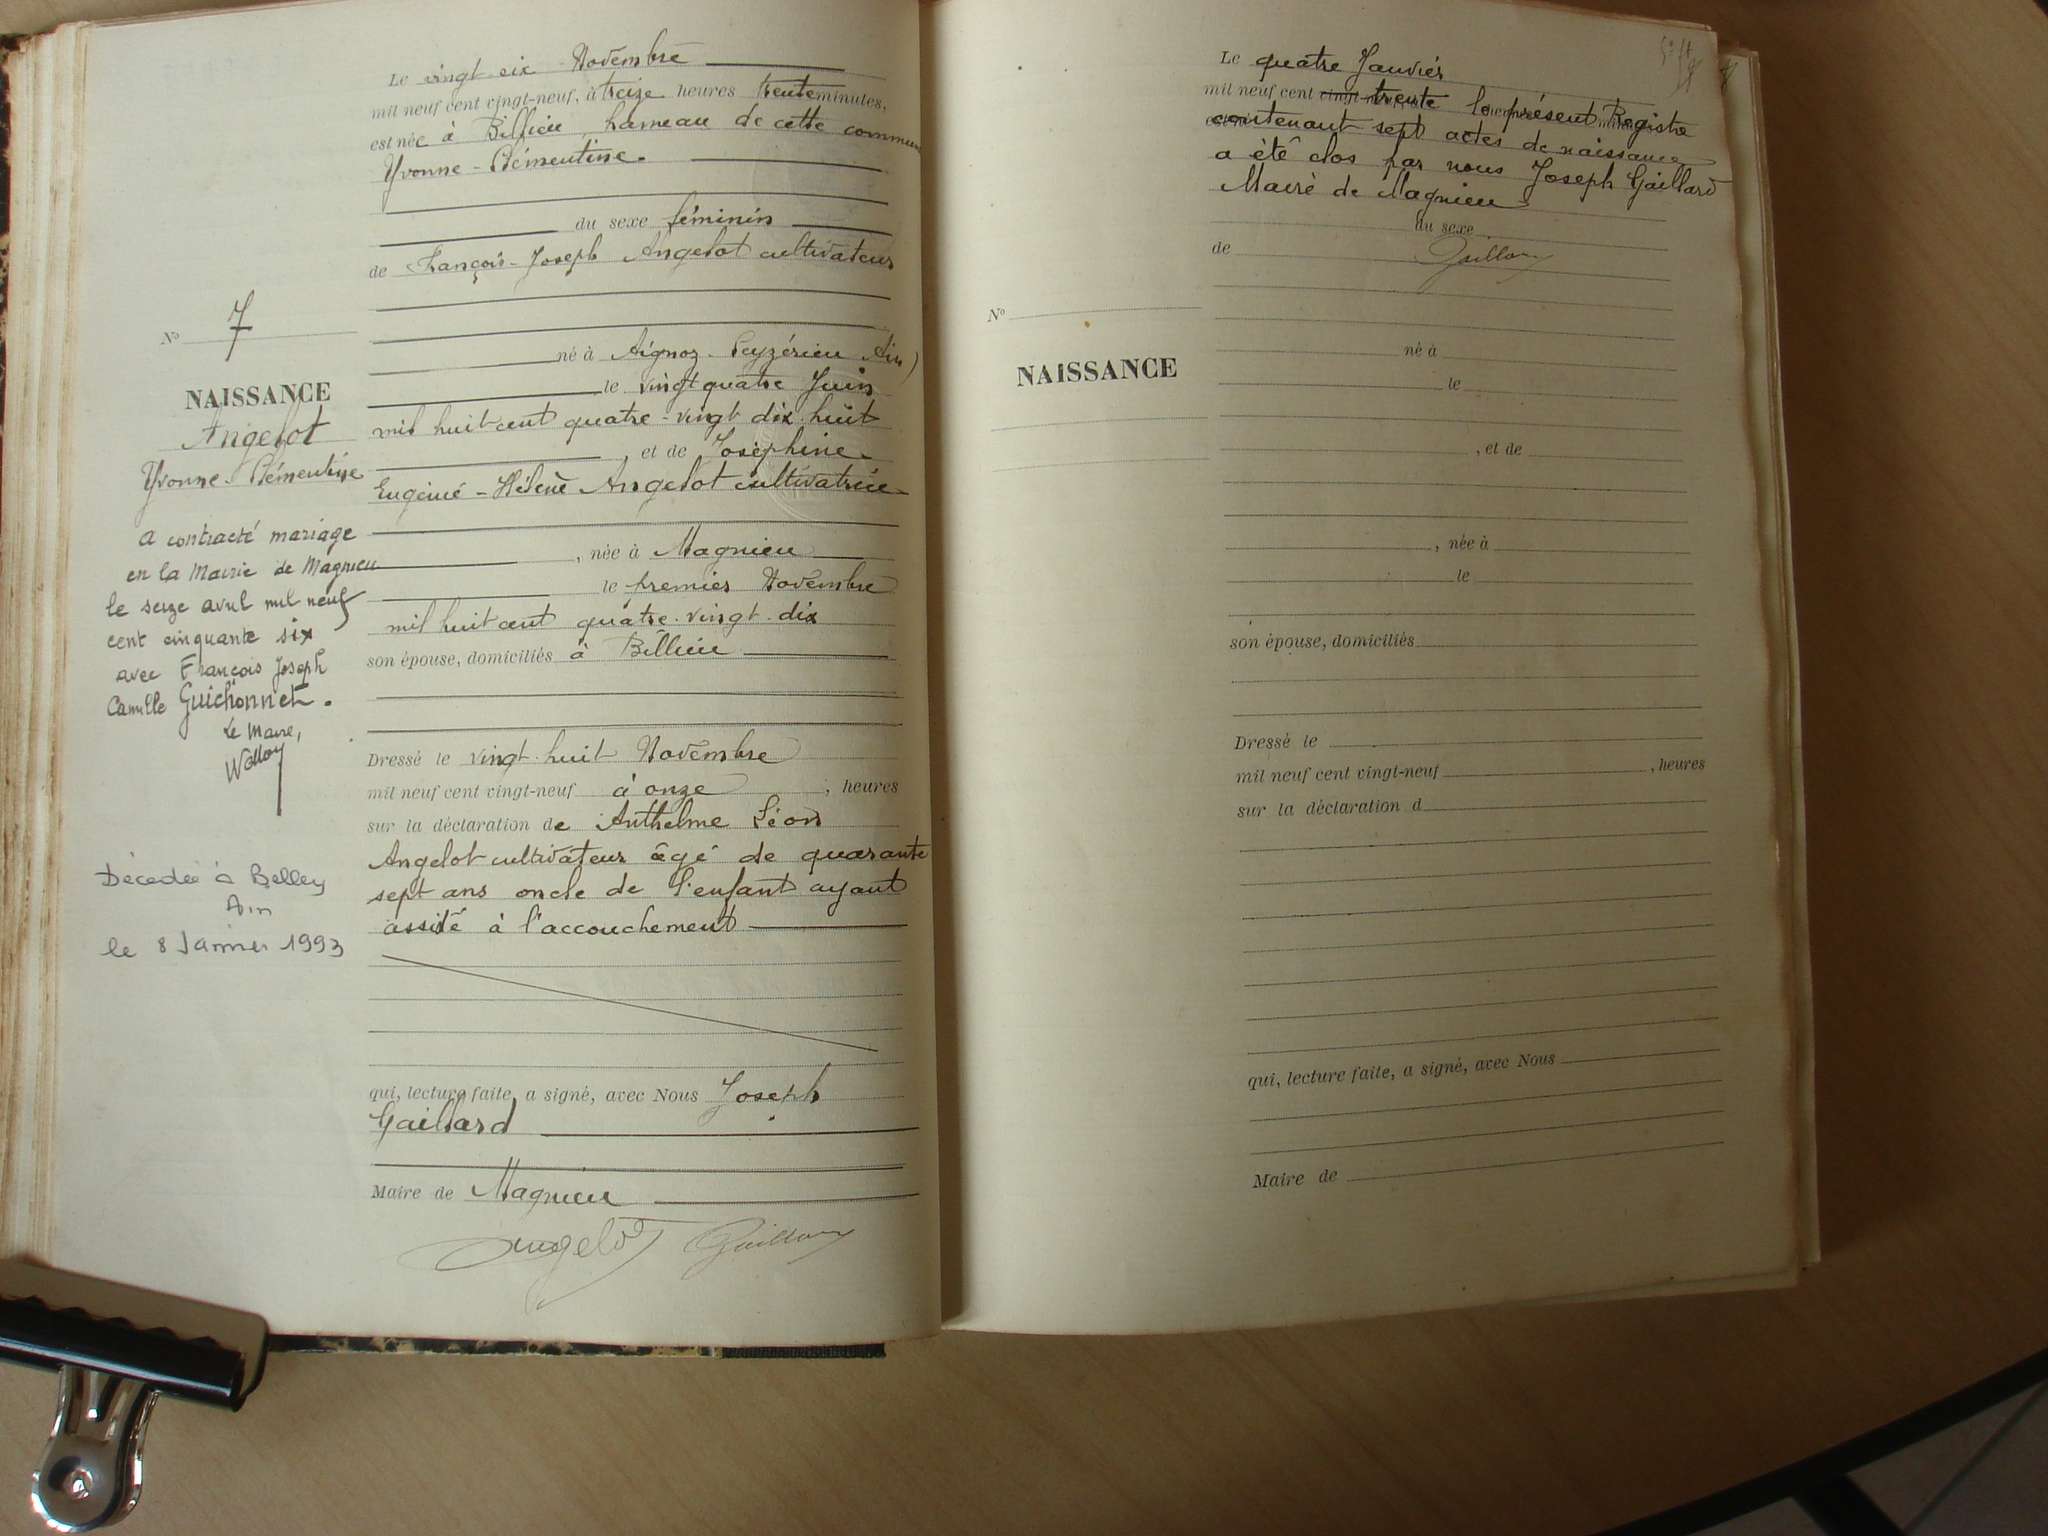 Le vingt six Novembre
mil neuf cent vingt-neuf, à treize heures trente minutes,
est née à Billieu, hameau de cette commune
Yvonne-Clémentine.
du sexe féminin
de François-Joseph Angelot cultivateur
né à Aignoz-Ceyzérieu (Ain)
le vingt quatre Juin
mil huit cent quatre-vingt dix huit
, et de Joséphine-
Eugénie-Hélène Angelot cultivatrice
, née à Magnieu
le premier Novembre
mil huit cent quatre-vingt-dix
son épouse, domiciliés à Billieu
Dressé le vingt-huit Novembre
mil neuf cent vingt-neuf à onze , heures
sur la déclaration de Anthelme Léon
Angelot cultivateur âgé de quarante
sept ans oncle de l'enfant ayant
assité à l'accouchement
qui, lecture faite, a signé, avec Nous Joseph
Gaillard
Maire de Magnieu
Angelot Gaillard
No 7
NAISSANCE
Angelot
Yvonne-Clémentine
a contracté mariage
en la Mairie de Magnieu
le seize avril mil neuf
cent cinquante six
avec François Joseph
Camille Guichonnet.
Le Maire,
Décédée à Belley
Ain
le 8 Janvier 1993
Le quatre Janvier
mil neuf cent vingt-neuf trente le présent Registre
contenant sept actes de naissance
a été clos par nous Joseph Gaillard
Maire de Magnieu
du sexe
de
Gaillard
No
NAISSANCE
né à
le
, et de
, née à
le
son épouse, domiciliés
Dressé le
mil neuf cent vingt-neuf , heures
sur la déclaration d
qui, lecture faite, a signé, avec Nous
Maire de